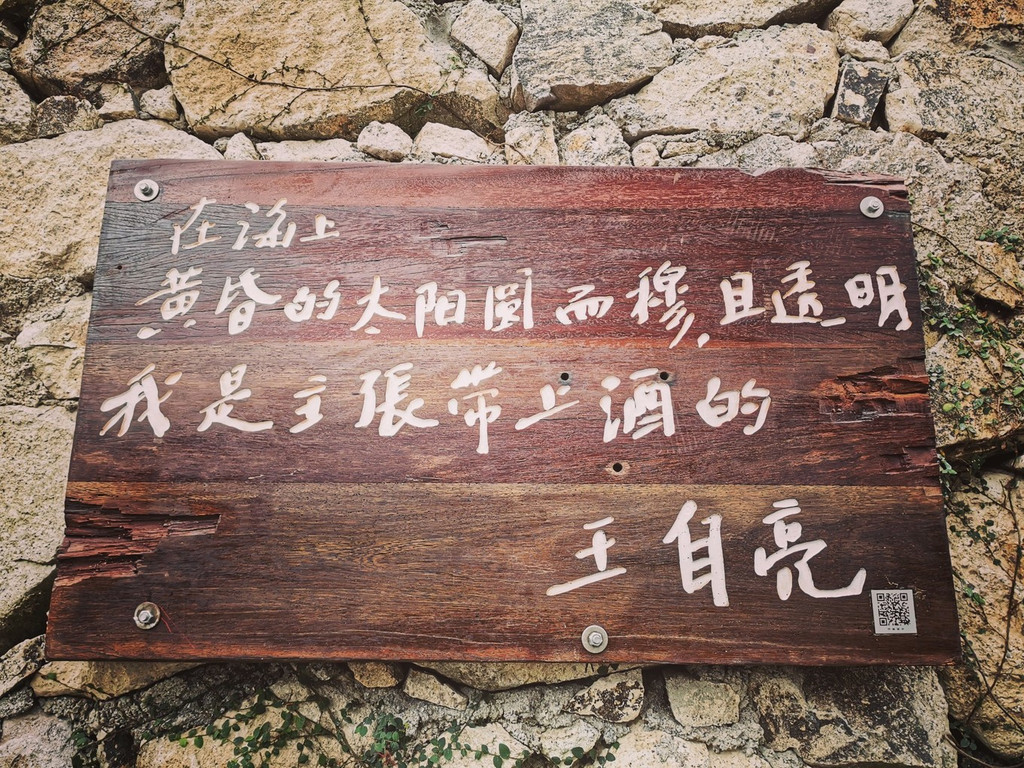 在海上
黄昏的太阳圓而穆,且透明
我是主張带上酒的
王自亮